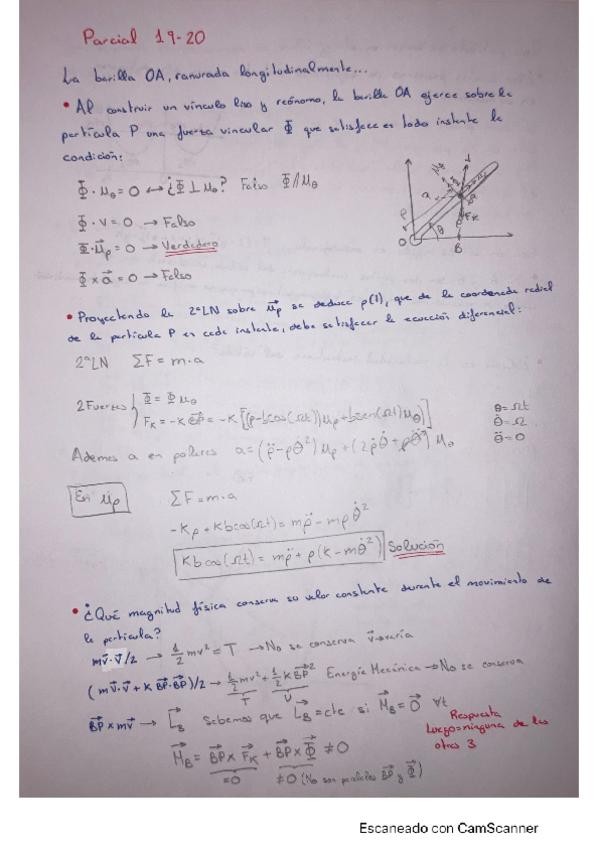 Parcial 19-20
La barilla OA, ranurada longitudinalmente...
• Al construir un vínculo liso y reónomo, la barilla OA ejerce sobre la
partícula P una fuerza vincular Φ que satisface en todo instante la
condición:
Φ̄·μ_θ = 0 ↔ ¿Φ̄ ⊥ μ_θ? Falso Φ̄ // μ_θ
Φ·v = 0 → Falso
Φ·μ⃗_ρ = 0 → Verdadero
Φ × a⃗ = 0 → Falso
ρ
a
F_K
θ
O
B
• Proyectando la 2ªLN sobre μ⃗_ρ se deduce ρ(t), que da la coordenada radial
de la partícula P en cada instante, debe satisfacer la ecuación diferencial:
2ªLN ΣF = m·a
2 Fuerzas { Φ̄ = Φ μ_θ
F_K = -K BP = -K [(ρ - b cos(Ωt)) μ_ρ + b sen(Ωt) μ_θ]
θ = Ωt
θ̇ = Ω
θ̈ = 0
Ademas a en polares a = (ρ̈ - ρθ̇²) μ_ρ + (2ρ̇θ̇ + ρθ̈) μ_θ
En μ⃗_ρ
ΣF = m·a
-Kρ + Kb cos(Ωt) = mρ̈ - mρθ̇²
Kb cos(Ωt) = mρ̈ + ρ(k - mθ̇²) Solución
• ¿Qué magnitud física conserva su valor constante durante el movimiento de
la partícula?
mv⃗·v⃗/2 → 1/2 mv² = T → No se conserva v⃗ → varía
(mv⃗·v⃗ + K BP·BP)/2 → 1/2 mv² + 1/2 K BP² Energía Mecánica → No se conserva
T U
BP × mv⃗ → L⃗_B Sabemos que L⃗_B = cte si M⃗_B = 0⃗ ∀t
Respuesta
Luego = ninguna de las
otras 3
M⃗_B = BP × F⃗_K + BP × Φ⃗ ≠ 0
=0 ≠0 (No son paralelos BP y Φ⃗)
Escaneado con CamScanner